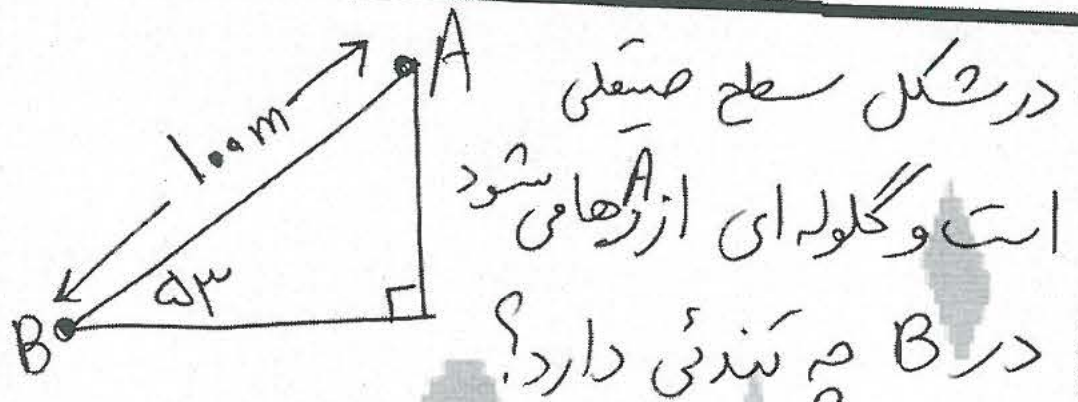 A
۱۰۰m
۵۳
B
در شکل سطح صیقلی
است و گلوله ای از A رها می شود
در B چه تندی دارد؟